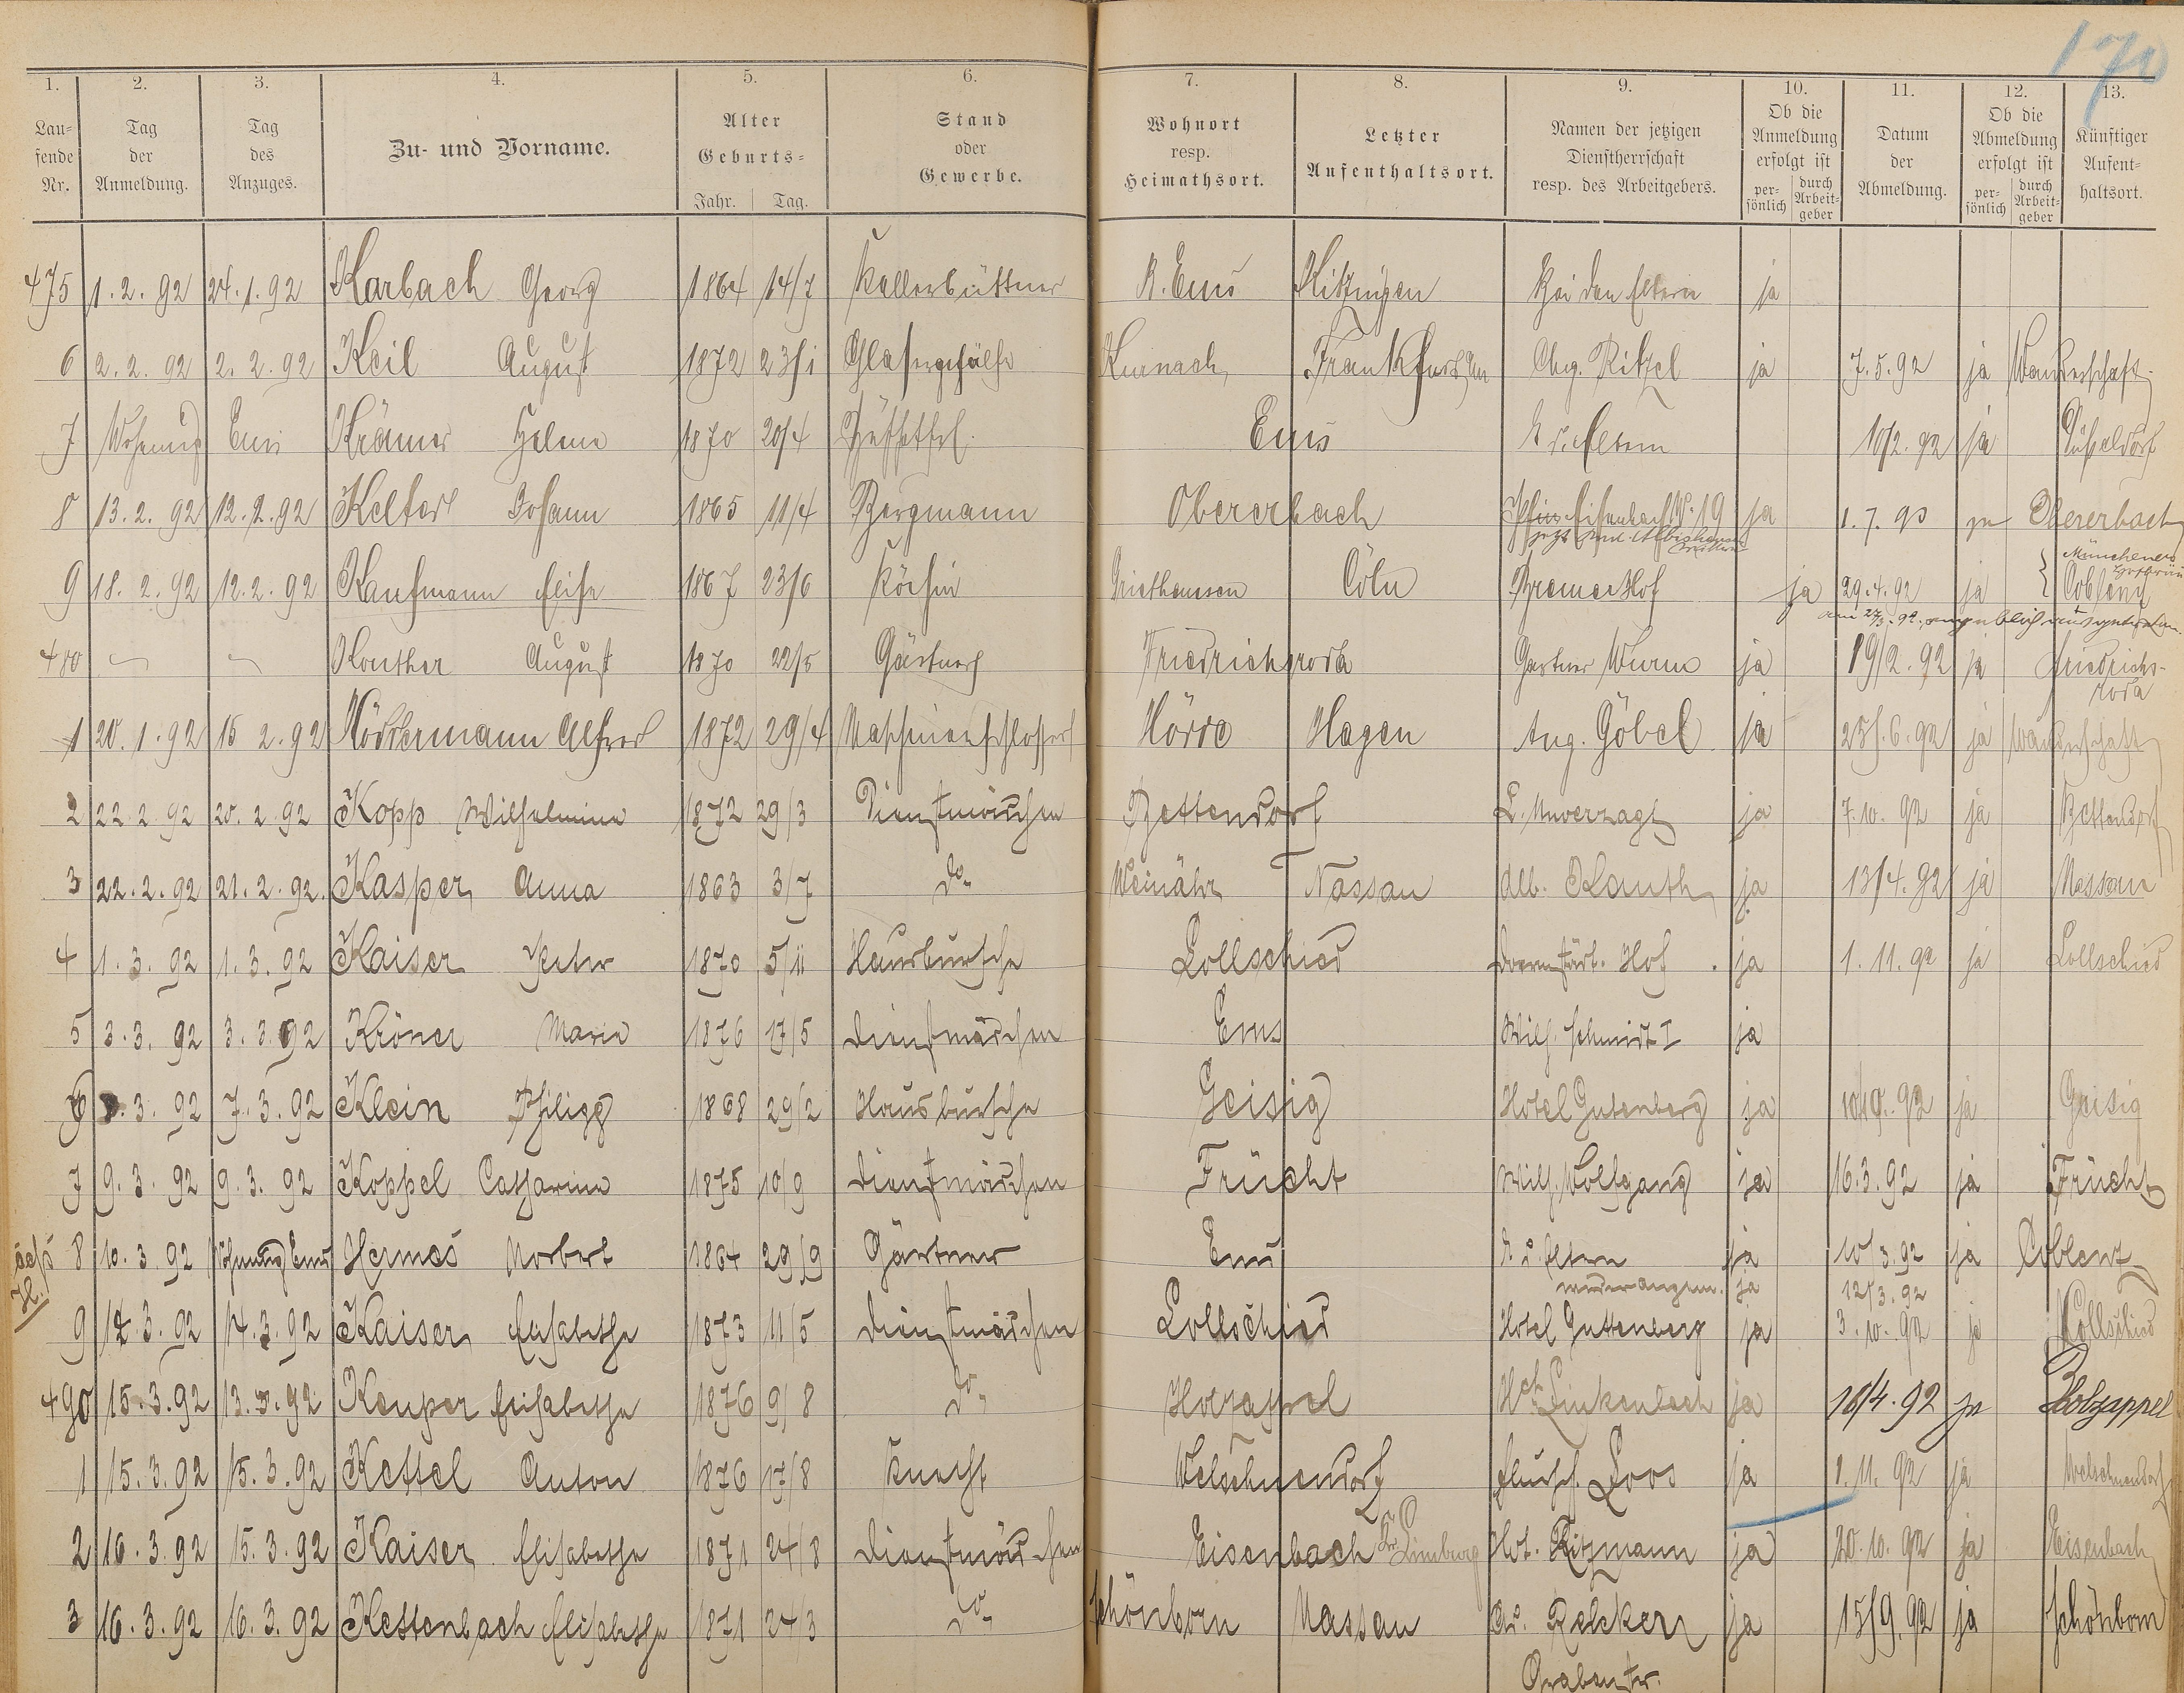 170
1. 2. 3. 4. 5. 6. 7. 8. 9. 10. 11. 12. 13.
Lau=
fende
Nr.
Tag
der
Anmeldung.
Tag
des
Anzuges.
Zu- und Vorname.
Alter
Geburts=
Jahr. Tag.
Stand
oder
Gewerbe.
Wohnort
resp.
Heimathsort.
Letzter
Aufenthaltsort.
Namen der jetzigen
Dienstherrschaft
resp. des Arbeitgebers.
Ob die
Anmeldung
erfolgt ist
per-
sönlich
durch
Arbeit-
geber
Datum
der
Abmeldung.
Ob die
Abmeldung
erfolgt ist
per-
sönlich
durch
Arbeit-
geber
Künftiger
Aufent-
haltsort.
475 1. 2. 92 24. 1. 92 Karbach Georg 1864 14/7 B. Ems Kitzingen Bei den Eltern ja
6 2. 2. 92 2. 2. 92 Keil August 1872 23/1 Glasergehülfe Frankfurt Chg. Ritzel ja 7. 5. 92 ja Wanderschaft
7 Wohnung Ems Krämer Helene 1870 20/4 Ems b. d. Eltern 10/2. 92 ja Düsseldorf
8 13. 2. 92 12. 2. 92 Kelter Johann 1865 11/4 Bergmann Obererbach Eisenbach No. 19 ja 1. 7. 93 ja Obererbach
jetzt
9 18. 2. 92 12. 2. 92 Kaufmann Elise 1867 23/6 Köchin Cöln Bremer Hof ja 29. 4. 92 ja Coblenz
480 August 1870 22/5 Gärtner Friedrichroda Gärtner Wurm ja 19/2. 92 ja Friedrichs-
roda
1 20. 1. 92 15 2. 92 Alfred 1872 29/4 Maschinenschlosser Hörde Hagen Aug. Göbel ja 25/. 6. 92 ja Wanderschaft
2 22. 2. 92 20. 2. 92 Kopp Wilhelmine 1872 29/3 Dienstmädchen Bettendorf L. Unverzagt ja 7. 10. 92 ja Bettendorf
3 22. 2. 92 21. 2. 92. Kasper Anna 1863 3/7 do. Weinähr Nassau Alb. Kauth ja 13/4. 92 ja Nassau
4 1. 3. 92 1. 3. 92 Kaiser Peter 1870 5/11 Hausbursche Lollschied Darmstädt. Hof ja 1. 11. 92 ja Lollschied
5 3. 3. 92 3. 3. 92 Kröner Marie 1876 17/5 Dienstmädchen Ems Wilh. Schmidt I ja
6 . 3. 92 7. 3. 92 Klein Philipp 1868 29/2 Hausbursche Geisig Hotel Gutenberg ja 92 ja Geisig
7 9. 3. 92 9. 3. 92 Koppel Catharine 1875 10/9 Dienstmädchen Frücht Wilh. Wolfgang ja 16. 3. 92 ja Frücht
8 10. 3. 92 Wohnung Ems Hermes Norbert 1864 29/9 Gärtner Ems b. d. Eltern ja 10/3. 92 ja Coblenz
H.
wieder angem. ja 12/3. 92
9 14. 3. 92 14. 3. 92 Kaiser Elisabethe 1873 11/5 Dienstmädchen Lollschied Hotel Guttenberg ja 3. 10. 92 ja Lollschied
490 15. 3. 92 13. 3. 92 Keuper Elisabethe 1876 9/8 do. Holzappel Linkenbach ja 16/4. 92 ja Holzappel
1 15. 3. 92 15. 3. 92 Kettel Anton 1876 17/8 Knecht Welschneudorf Loos ja 1. 11. 92 ja Welschneudorf
2 16. 3. 92 15. 3. 92 Kaiser Elisabethe 1871 24/8 Dienstmädchen Eisenbach Kr. Limburg Hot. Ritzmann ja 20. 10. 92 ja Eisenbach
3 16. 3. 92 16. 3. 92 Kettenbach Elisabethe 1871 24/3 do. Schönborn Nassau ja 15/9. 92 ja Schönborn
Grabenstr.